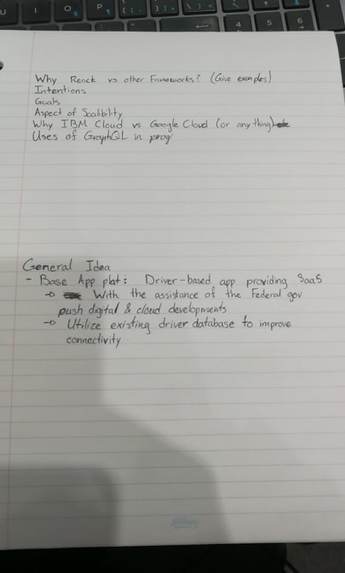 Why React vs other Frameworks? (Give examples)
Intentions
Goals
Aspect of Scalibilty
Why IBM Cloud vs Google Cloud (or anything)
Uses of GraphQL in prog
General Idea
- Base App plat: Driver-based app providing SaaS
→ With the assistance of the Federal gov
push digital & cloud developments
→ Utilize existing driver database to improve
connectivity